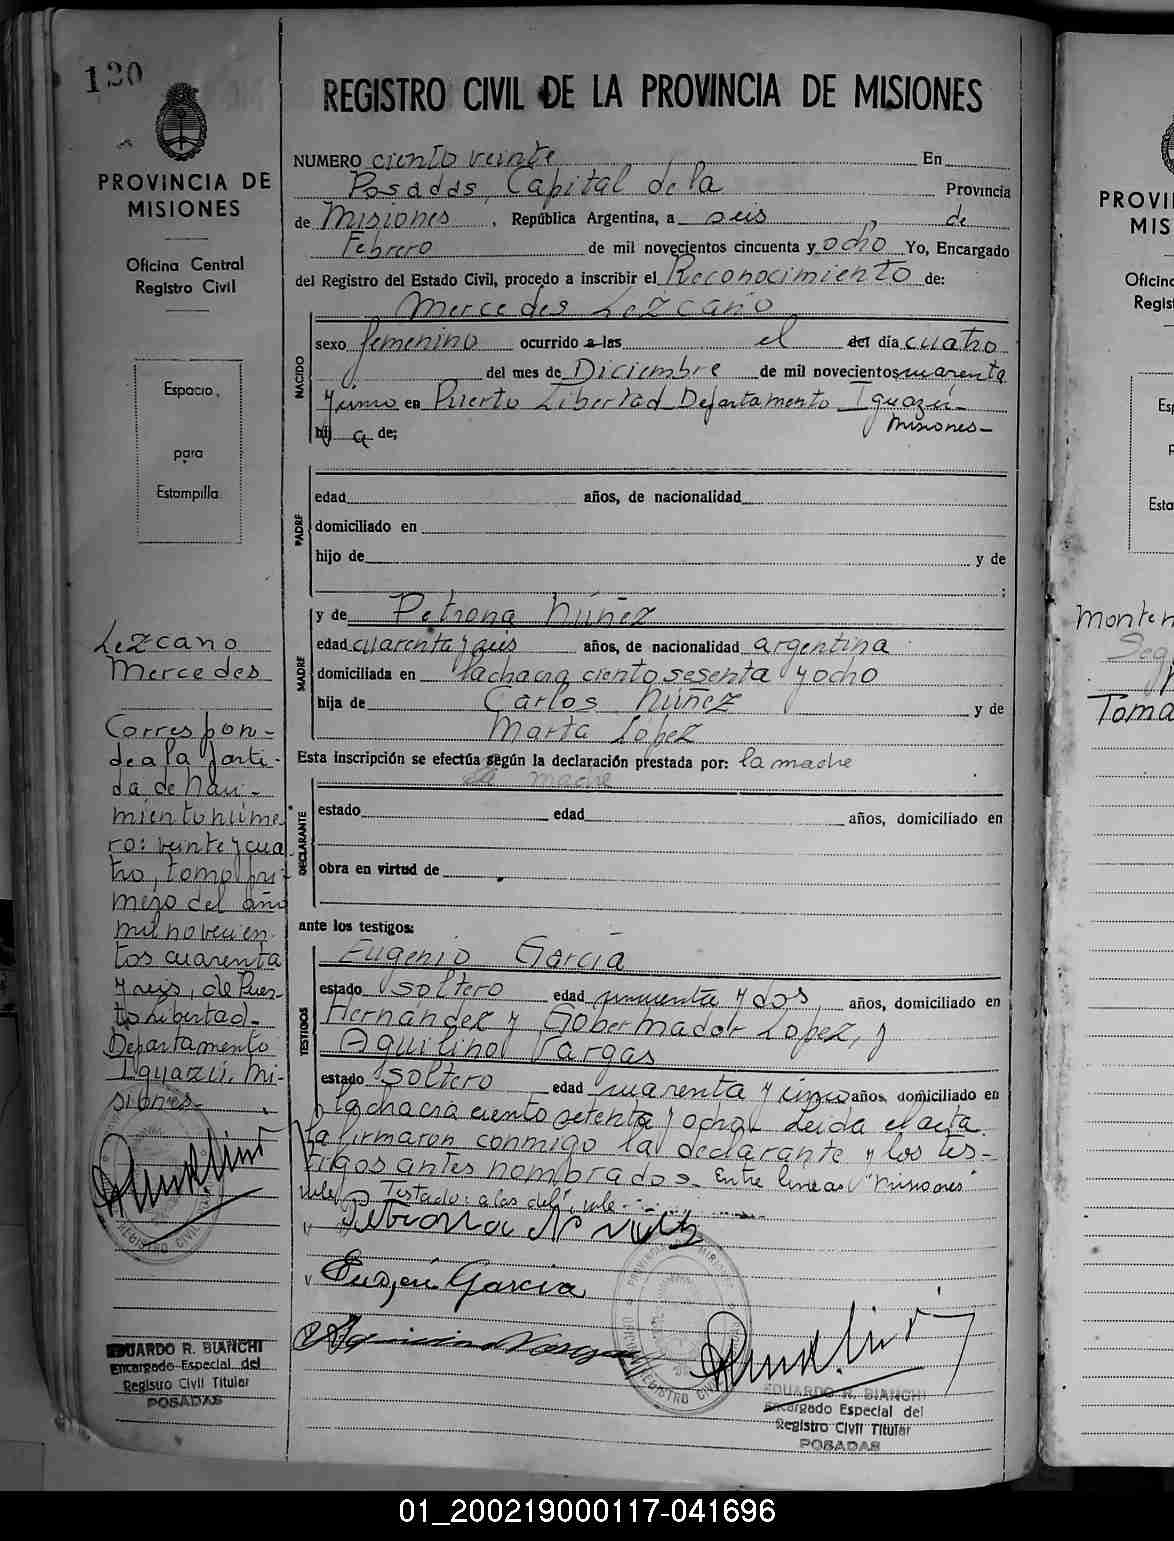 120
PROVINCIA DE
MISIONES
Oficina Central
Registro Civil
Espacio
para
Estampilla
Lezcano
Mercedes
Correspon-
de a la parti-
da de naci-
miento núme
ro: veinte y cua
tro, tomo pri-
mero del año
mil novecien
tos cuarenta
y seis, de Puer-
to Libertad-
Departamento
Iguazú. Mi-
siones-
EDUARDO R. BIANCHI
Encargado Especial del
Registro Civil Titular
POSADAS
REGISTRO CIVIL DE LA PROVINCIA DE MISIONES
NUMERO ciento veinte En
Posadas, Capital de la Provincia
de Misiones, República Argentina, a seis de
Febrero de mil novecientos cincuenta y ocho Yo, Encargado
del Registro del Estado Civil, procedo a inscribir el Reconocimiento de:
Mercedes Lezcano
NACIDO
sexo femenino ocurrido a las el del día cuatro
del mes de Diciembre de mil novecientos cuarenta
y cinco en Puerto Libertad Departamento Iguazú-
Misiones-
hij a de;
PADRE
edad años, de nacionalidad
domiciliado en
hijo de y de
;
MADRE
y de Petrona Núñez
edad cuarenta y seis años, de nacionalidad argentina
domiciliada en la chacra ciento sesenta y ocho
hija de Carlos Núñez y de
Marta López
Esta inscripción se efectúa según la declaración prestada por: la madre
la madre
DECLARANTE
estado edad años, domiciliado en
obra en virtud de
ante los testigos:
TESTIGOS
Eugenio García
estado soltero edad cincuenta y dos años, domiciliado en
Hernández y Gobernador López, y
Aquilino Vargas
estado soltero edad cuarenta y cinco años, domiciliado en
la chacra ciento setenta y ocho- Leida el acta
la firmaron conmigo la declarante y los tes-
tigos antes nombrados- Entre lineas "Misiones"
vale. Testado: a las del, vale-
Petrona Nuñez
Eugenio Garcia
Aquilino Vargas
EDUARDO R. BIANCHI
Encargado Especial del
Registro Civil Titular
POSADAS
PROVI
MIS
Oficina
Regist
Esp
Esta
Toma
01_200219000117-041696